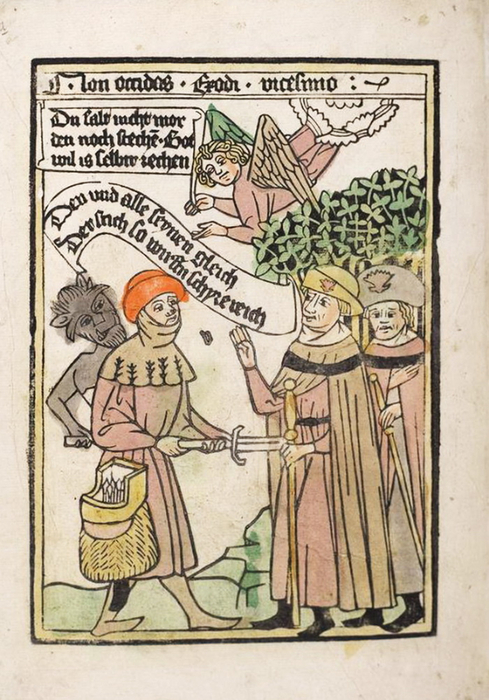 Non occides · Exodi · vicesimo :
Du salt nicht mor
den noch stechē · Got
wil is selber rechen
Den vnd alle seynen gleich
Der stich so wirstu schyre reich